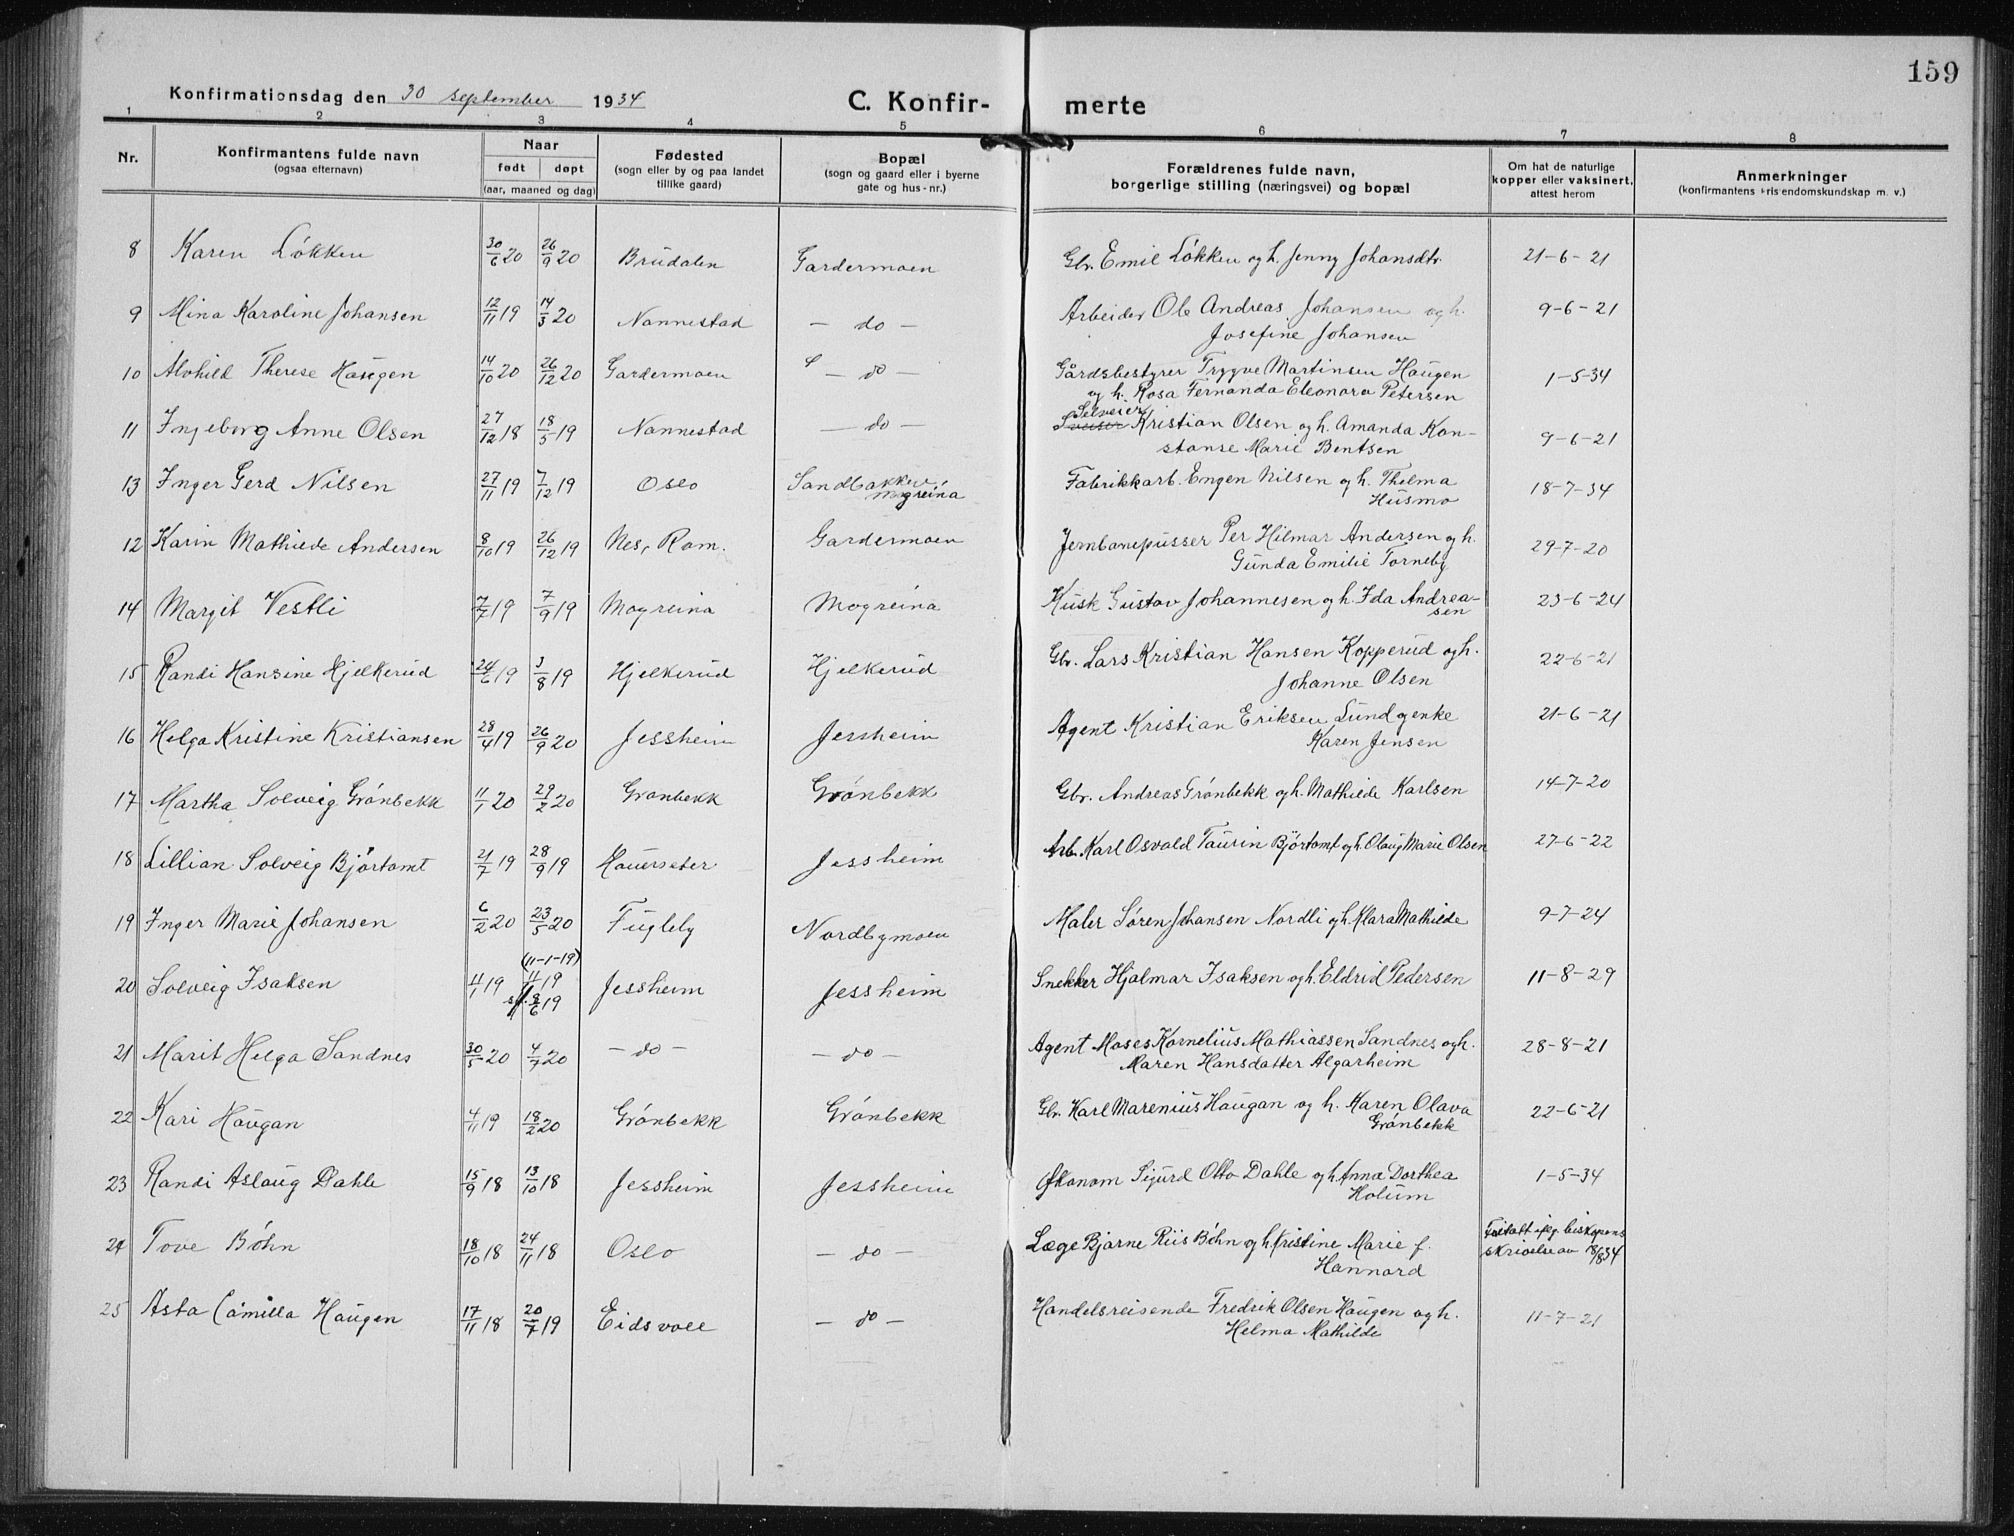 159
Konfirmationsdag den 30 september 1934
C. Konfir- merte
1 2 3 4 5 6 7 8
Nr. | Konfirmantens fulde navn (ogsaa efternavn) | Naar født døpt (aar, maaned og dag) | Fødested (sogn eller by og paa landet tillike gaard) | Bopæl (sogn og gaard eller i byerne gate og hus-nr.) | Forældrenes fulde navn, borgerlige stilling (næringsvei) og bopæl | Om hat de naturlige kopper eller vaksinert, attest herom | Anmerkninger (konfirmantens kristendomskundskap m. v.)
8 Karen Løkken 30/6 20 26/9 20 Brudalen Gardermoen Gbr. Emil Løkken og h. Jenny Johansdtr. 21-6-21
9 Mina Karoline Johansen 12/11 19 14/3 20 Nannestad — do — Arbeider Ole Andreas Johansen og h. 9-6-21
Josefine Johansen
10 Alvhild Therese Haugen 14/10 20 26/12 20 Gardermoen — do — Gårdsbestyrer Trygve Martinsen Haugen 1-5-34
og h. Rosa Fernanda Eleonora Petersen
Selveier
11 Ingeborg Anne Olsen 27/12 18 18/5 19 Nannestad — do — Sveiser Kristian Olsen og h. Amanda Kon- 9-6-21
stanse Marie Bentsen
13 Inger Gerd Nilsen 27/11 19 7/12 19 Oslo Sandbakken Fabrikkarb. Engen Nilsen og h. Thelma 18-7-34
Mogreina Husmo
12 Karin Mathilde Andersen 8/10 19 26/12 19 Nes, Rom. Gardermoen Jernbanepusser Per Hilmar Andersen og h. 29-7-20
Gunda Emilie Torneby
14 Margit Vestli 7/7 19 7/9 19 Mogreina Mogreina Husk Gustav Johannesen og h. Ida Andrea- 23-6-24
sen
15 Randi Hansine Hjelkerud 24/6 19 3/8 19 Hjelkerud Hjelkerud Gbr. Lars Kristian Hansen Kopperud og h. 22-6-21
Johanne Olsen
16 Helga Kristine Kristiansen 28/4 19 26/9 20 Jessheim Jessheim Agent Kristian Eriksen Lund og enke 21-6-21
Karen Jensen
17 Martha Solveig Grønbekk 11/1 20 29/2 20 Grønbekk Grønbekk Gbr. Andreas Grønbekk og h. Mathilde Karlsen 14-7-20
18 Lillian Solveig Bjørtomt 21/7 19 28/9 19 Hauerseter Jessheim Arb. Karl Osvald Taurin Bjørtomt og h. Olaug Marie Olsen 27-6-22
19 Inger Marie Johansen 6/2 20 23/5 20 Fugleby Nordbymoen Maler Søren Johansen Nordli og h. Klara Mathilde 9-7-24
(11-1-19)
20 Solveig Isaksen 11/1 19 11/1 19 Jessheim Jessheim Snekker Hjalmar Isaksen og h. Eldrid Pedersen 11-8-29
st. 8/6 19
21 Marit Helga Sandnes 30/5 20 4/7 20 — do — — do — Agent Moses Kornelius Mathiassen Sandnes og h. 28-8-21
Maren Hansdatter Algarheim
22 Kari Haugan 4/11 19 18/2 20 Grønbekk Grønbekk Gbr. Karl Marenius Haugan og h. Karen Olava 22-6-21
Grønbekk
23 Randi Aslaug Dahle 15/9 18 13/10 18 Jessheim Jessheim Økonom Sigurd Otto Dahle og h. Anna Dorthea 1-5-34
Holum
24 Tove Bøhn 18/10 18 24/11 18 Oslo — do Læge Bjarne Riis Bøhn og h. Kristine Marie f. Fritatt iflg. biskopens
Hannord skrivelse av 18/8 34
25 Asta Camilla Haugen 17/11 18 20/7 19 Eidsvoll — do — Handelsreisende Fredrik Olsen Haugen og h. 11-7-21
Helma Mathilde